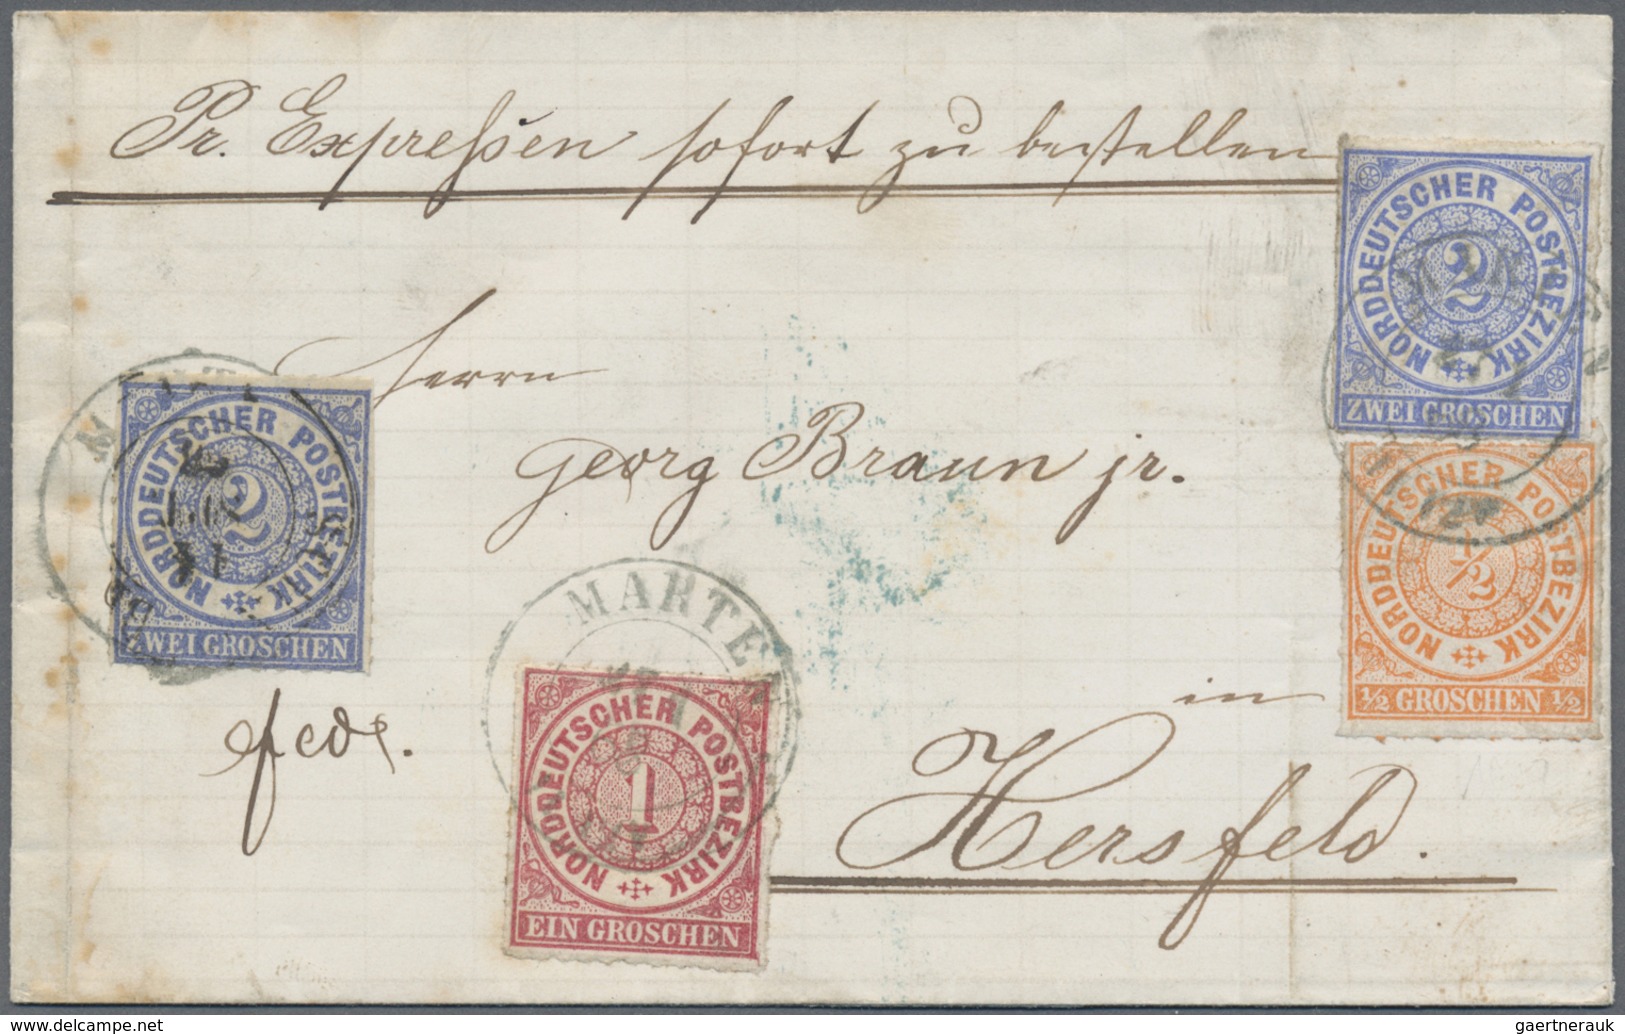 Pr. Expreßen sofort zu bestellen
NORDDEUTSCHER POSTBEZIRK
2
ZWEI GROSCHEN
NORDDEUTSCHER POSTBEZIRK
1/2
1/2 GROSCHEN 1/2
Herrn
NORDDEUTSCHER POSTBEZIRK
2
ZWEI GROSCHEN
georg Braun jr.
MARTE
in
Hersfeld.
NORDDEUTSCHER POSTBEZIRK
1
EIN GROSCHEN
www.delcampe.net
gaertnerauk